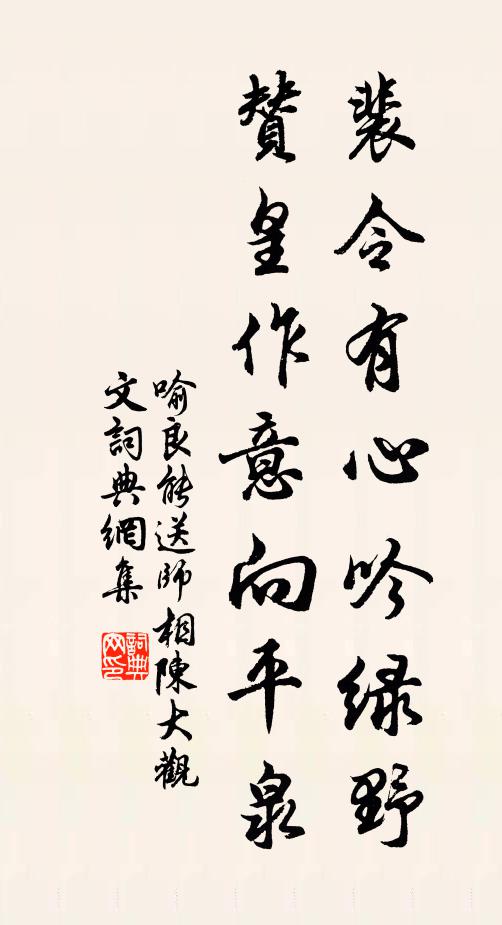 裴令有心吟緑野
贊皇作意向平泉
喻良能送師相陳大觀
文詞典網集
詞典
网印